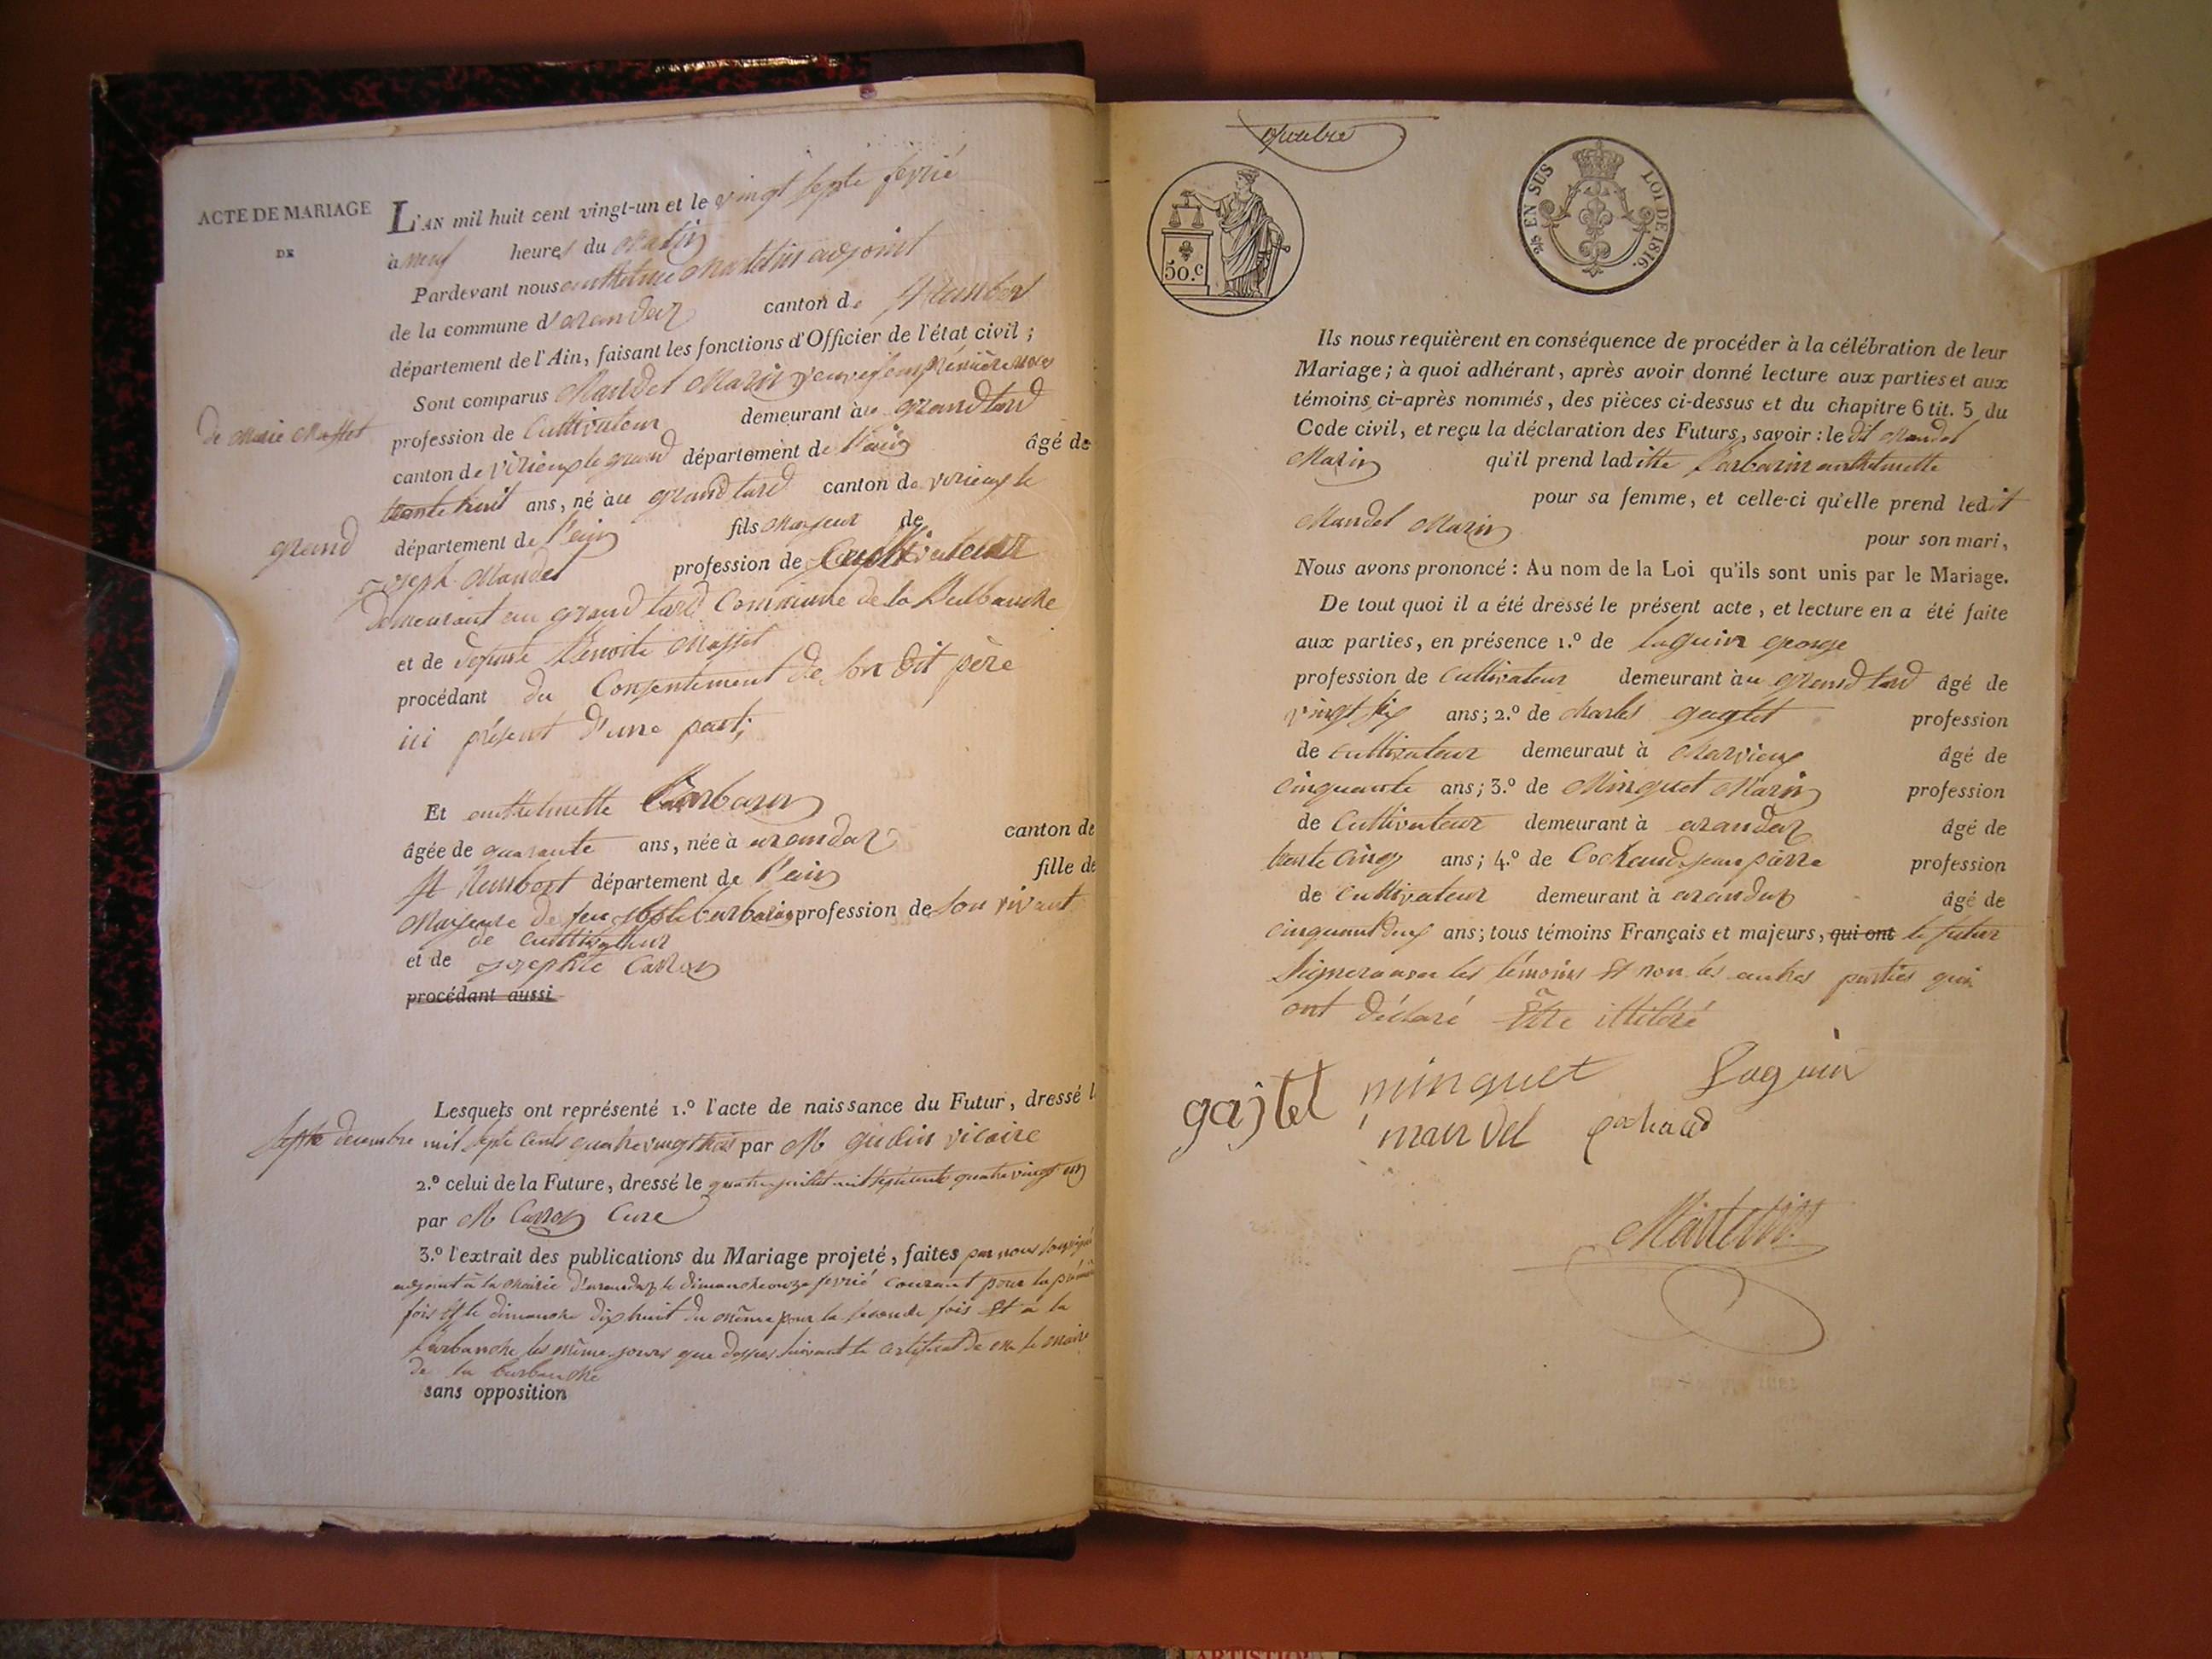 ACTE DE MARIAGE
DE
L'AN mil huit cent vingt-un et le vingt septe fevrié
à neuf heures du matin
Pardevant nous anthelme Martelin adjoint
de la commune d'arandaz canton de St Rambert
département de l'Ain, faisant les fonctions d'Officier de l'état civil ;
Sont comparus Mandel Marin veuve en première noces
de Marie Masset
profession de Cultivateur demeurant au grand tard
canton de virieux le grand département de l'ain âgé de
trente huit ans, né au grand tard canton de virieux le
grand département de l'ain fils majeur de
joseph Mandel profession de Cultivateur
demeurant au grand tard Commune de la Burbanche
et de defunte Benoite Masset
procédant du Consentement de son dit père
ici présent d'une part;
Et anthelmette Barbarin
âgée de quarante ans, née à arandaz canton de
St Rambert département de l'ain fille de
Majeure de feu barbarin profession de son vivant
de cultivateur
et de josephte Carron
procédant aussi
Lesquels ont représenté 1.º l'acte de naissance du Futur, dressé l
septe decembre mil septe cents quatrevingt trois par M gudin vicaire
2.º celui de la Future, dressé le quatre juillet mil septcents quatre vingt un
par M Carron Cure
3.º l'extrait des publications du Mariage projeté, faites par nous soussigné
adjoint à la Mairie d'arandaz le dimanche onze fevrié courant pour la premiere
fois et le dimanche dix huit du même pour la seconde fois et à la
burbanche les même jours que dessus suivant le certificat de M le Maire
de la burbanche
sans opposition
quatre
50.c
2/5 EN SUS
LOI DE 1816.
Ils nous requièrent en conséquence de procéder à la célébration de leur
Mariage ; à quoi adhérant, après avoir donné lecture aux parties et aux
témoins ci-après nommés, des pièces ci-dessus et du chapitre 6 tit. 5 du
Code civil, et reçu la déclaration des Futurs, savoir : le dit Mandel
Marin qu'il prend laditte Barbarin anthelmette
pour sa femme, et celle-ci qu'elle prend ledit
Mandel Marin
pour son mari,
Nous avons prononcé : Au nom de la Loi qu'ils sont unis par le Mariage.
De tout quoi il a été dressé le présent acte, et lecture en a été faite
aux parties, en présence 1.º de luguin george
profession de Cultivateur demeurant au grand tard âgé de
vingt six ans; 2.º de charles gagtet profession
de cultivateur demeuraut à Marvieux âgé de
cinquante ans; 3.º de Minguet Marin profession
de Cultivateur demeurant à arandaz âgé de
trente cinq ans; 4.º de Cochaud jean pierre profession
de cultivateur demeurant à arandaz âgé de
cinquant deux ans; tous témoins Français et majeurs, qui ont le futur
signera avec les témoins et non les autres parties qui
ont déclaré être illitéré
gajtet minguet Luguin
mandel Cochaud
Martelin